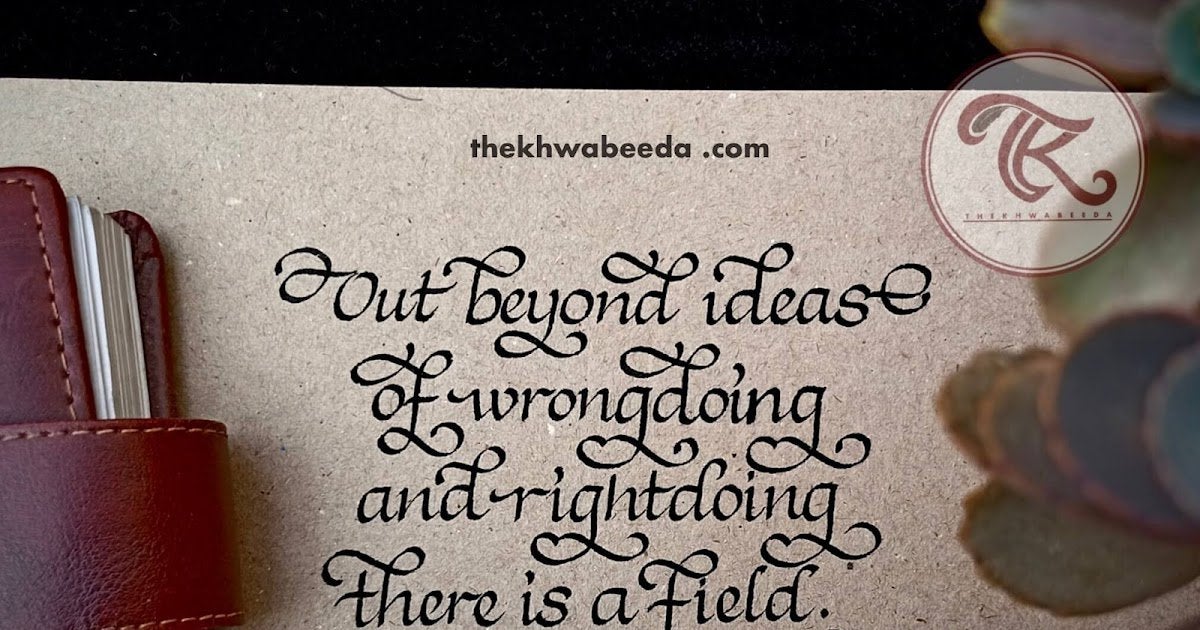 thekhwabeeda .com
TK
THEKHWABEEDA
Out beyond ideas
of wrongdoing
and rightdoing
there is a field.